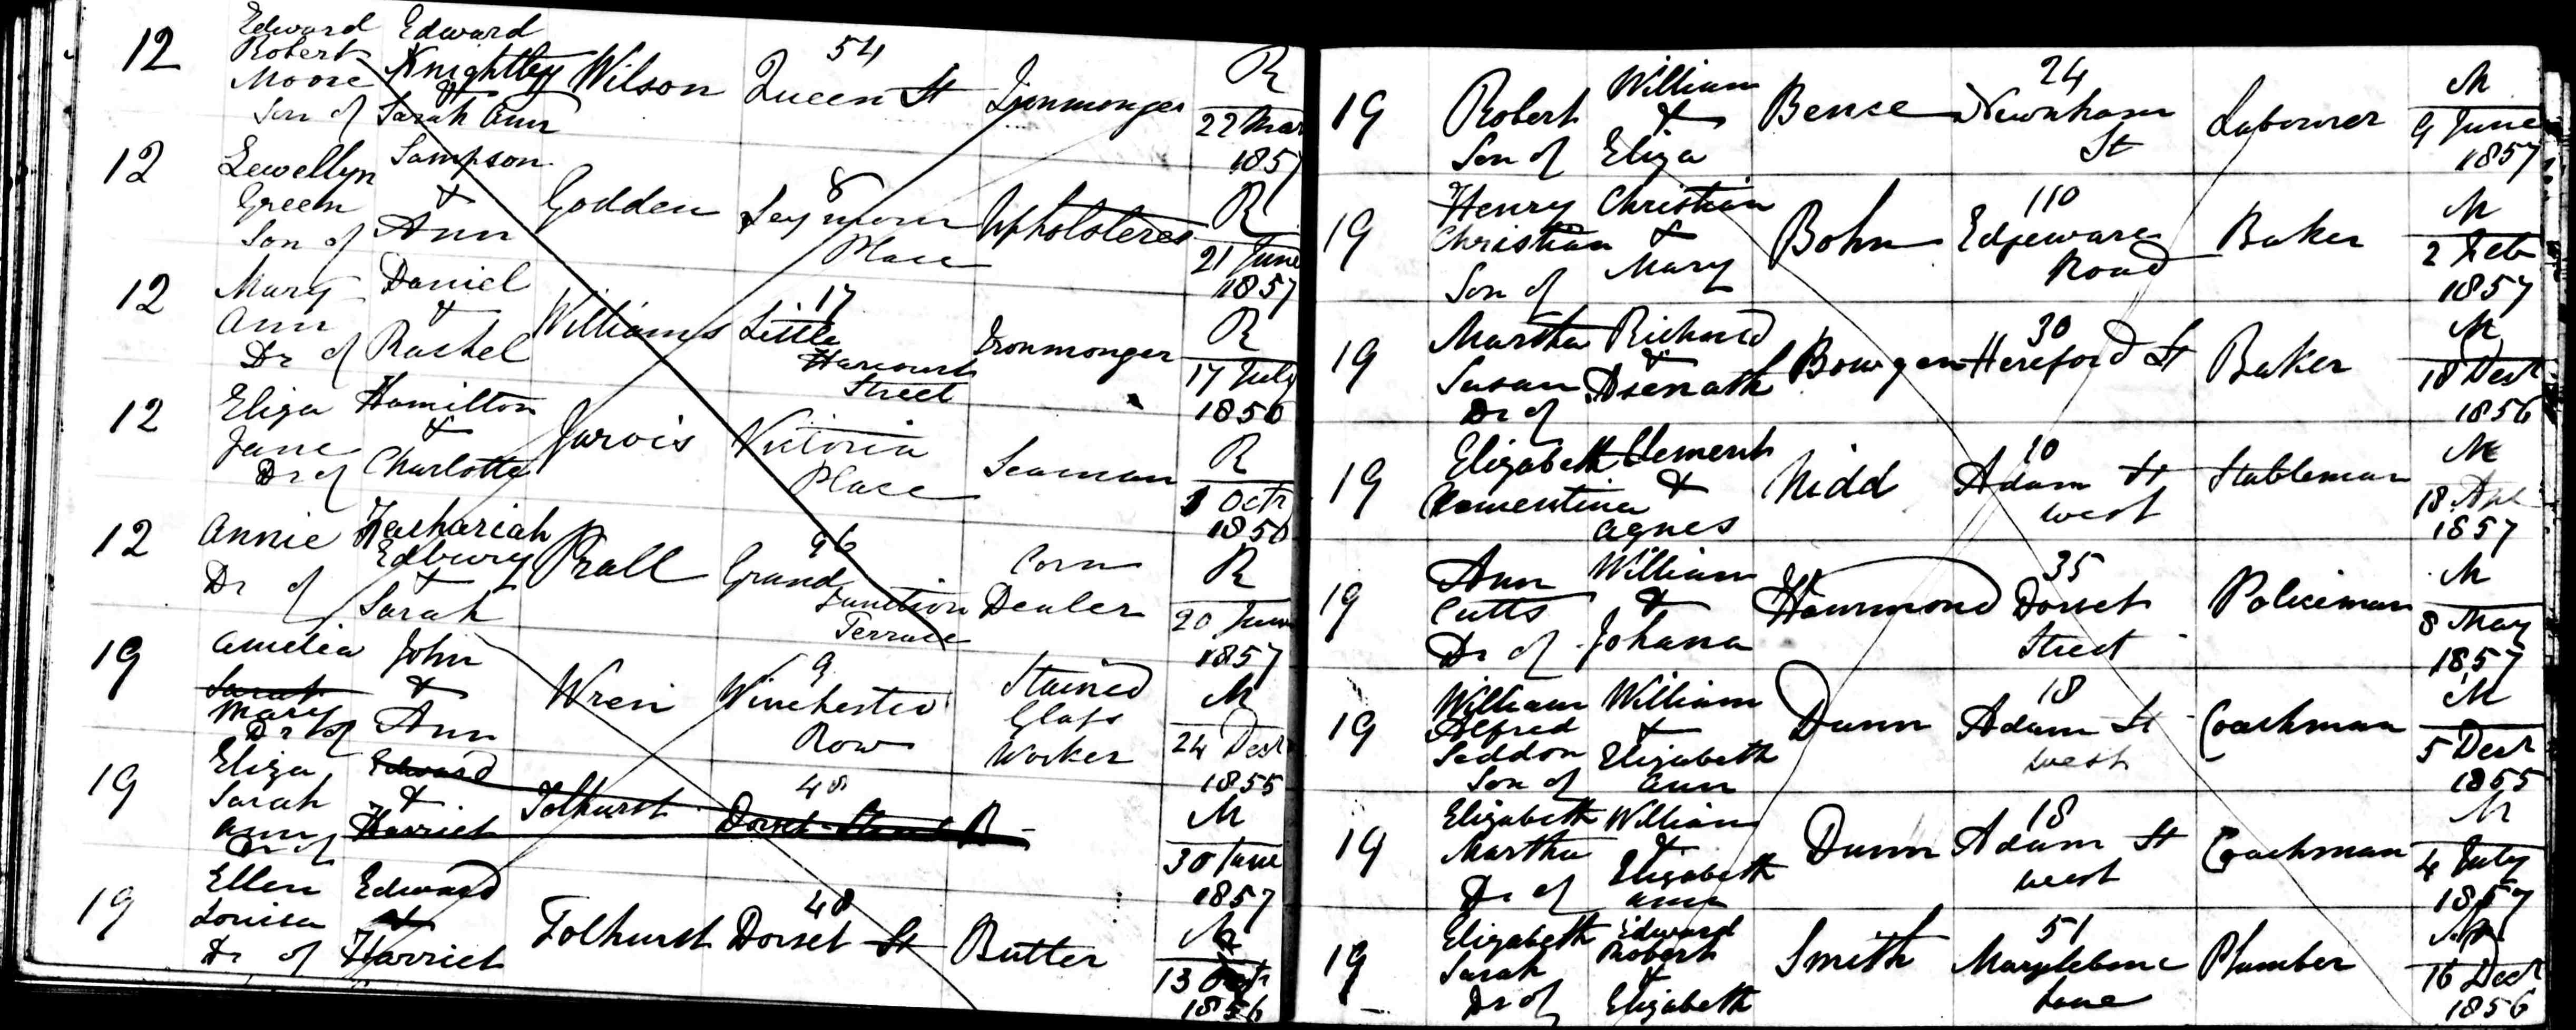 12 Edward Robert Moore Son of Edward Knightley & Sarah Ann Wilson 54 Queen St Ironmonger R 22 Mar 1857
12 Lewellyn Green Son of Sampson & Ann Godden 8 Seymour Place Upholsterer R 21 June 1857
12 Mary Ann Dr of Daniel & Rachel Williams 17 Little Harcourt Street Ironmonger R 17 July 1856
12 Eliza Jane Dr of Hamilton & Charlotte Jarvis Victoria Place Seaman R 1 Octr 1856
12 Annie Dr of Zachariah Edbury & Sarah Prall 96 Grand Junction Terrace Corn Dealer R 20 June 1857
19 Amelia Sarah Mary Dr of John & Ann Wren 9 Winchester Row Stained Glass Worker M 24 Decr 1855
19 Eliza Sarah Ann Dr of Edward & Harriet Tolhurst 48 Dorset Street B M 30 June 1857
19 Ellen Louisa Dr of Edward & Harriet Tolhurst 48 Dorset St Butter M 13 Octr 1856
19 Robert Son of William & Eliza Bense 24 Newnham St Labourer M 9 June 1857
19 Henry Christian Son of Christian & Mary Bohn 110 Edgeware Road Baker M 2 Feb 1857
19 Martha Susan Dr of Richard & Asenath Bowgen 30 Hereford St Baker M 18 Decr 1856
19 Elizabeth Clementina Clement & Agnes Nidd 10 Adam St west Stableman M 18 1857
19 Ann Cutts Dr of William & Johana Hammond 35 Dorset Street Policeman M 8 May 1857
19 William Alfred Seddon Son of William & Elizabeth Ann Dunn 18 Adam St west Coachman M 5 Decr 1855
19 Elizabeth Martha Dr of William & Elizabeth Ann Dunn 18 Adam St west Coachman M 4 July 1857
19 Elizabeth Sarah Dr of Edward Robert & Elizabeth Smith 51 Marylebone Lane Plumber M 16 Decr 1856